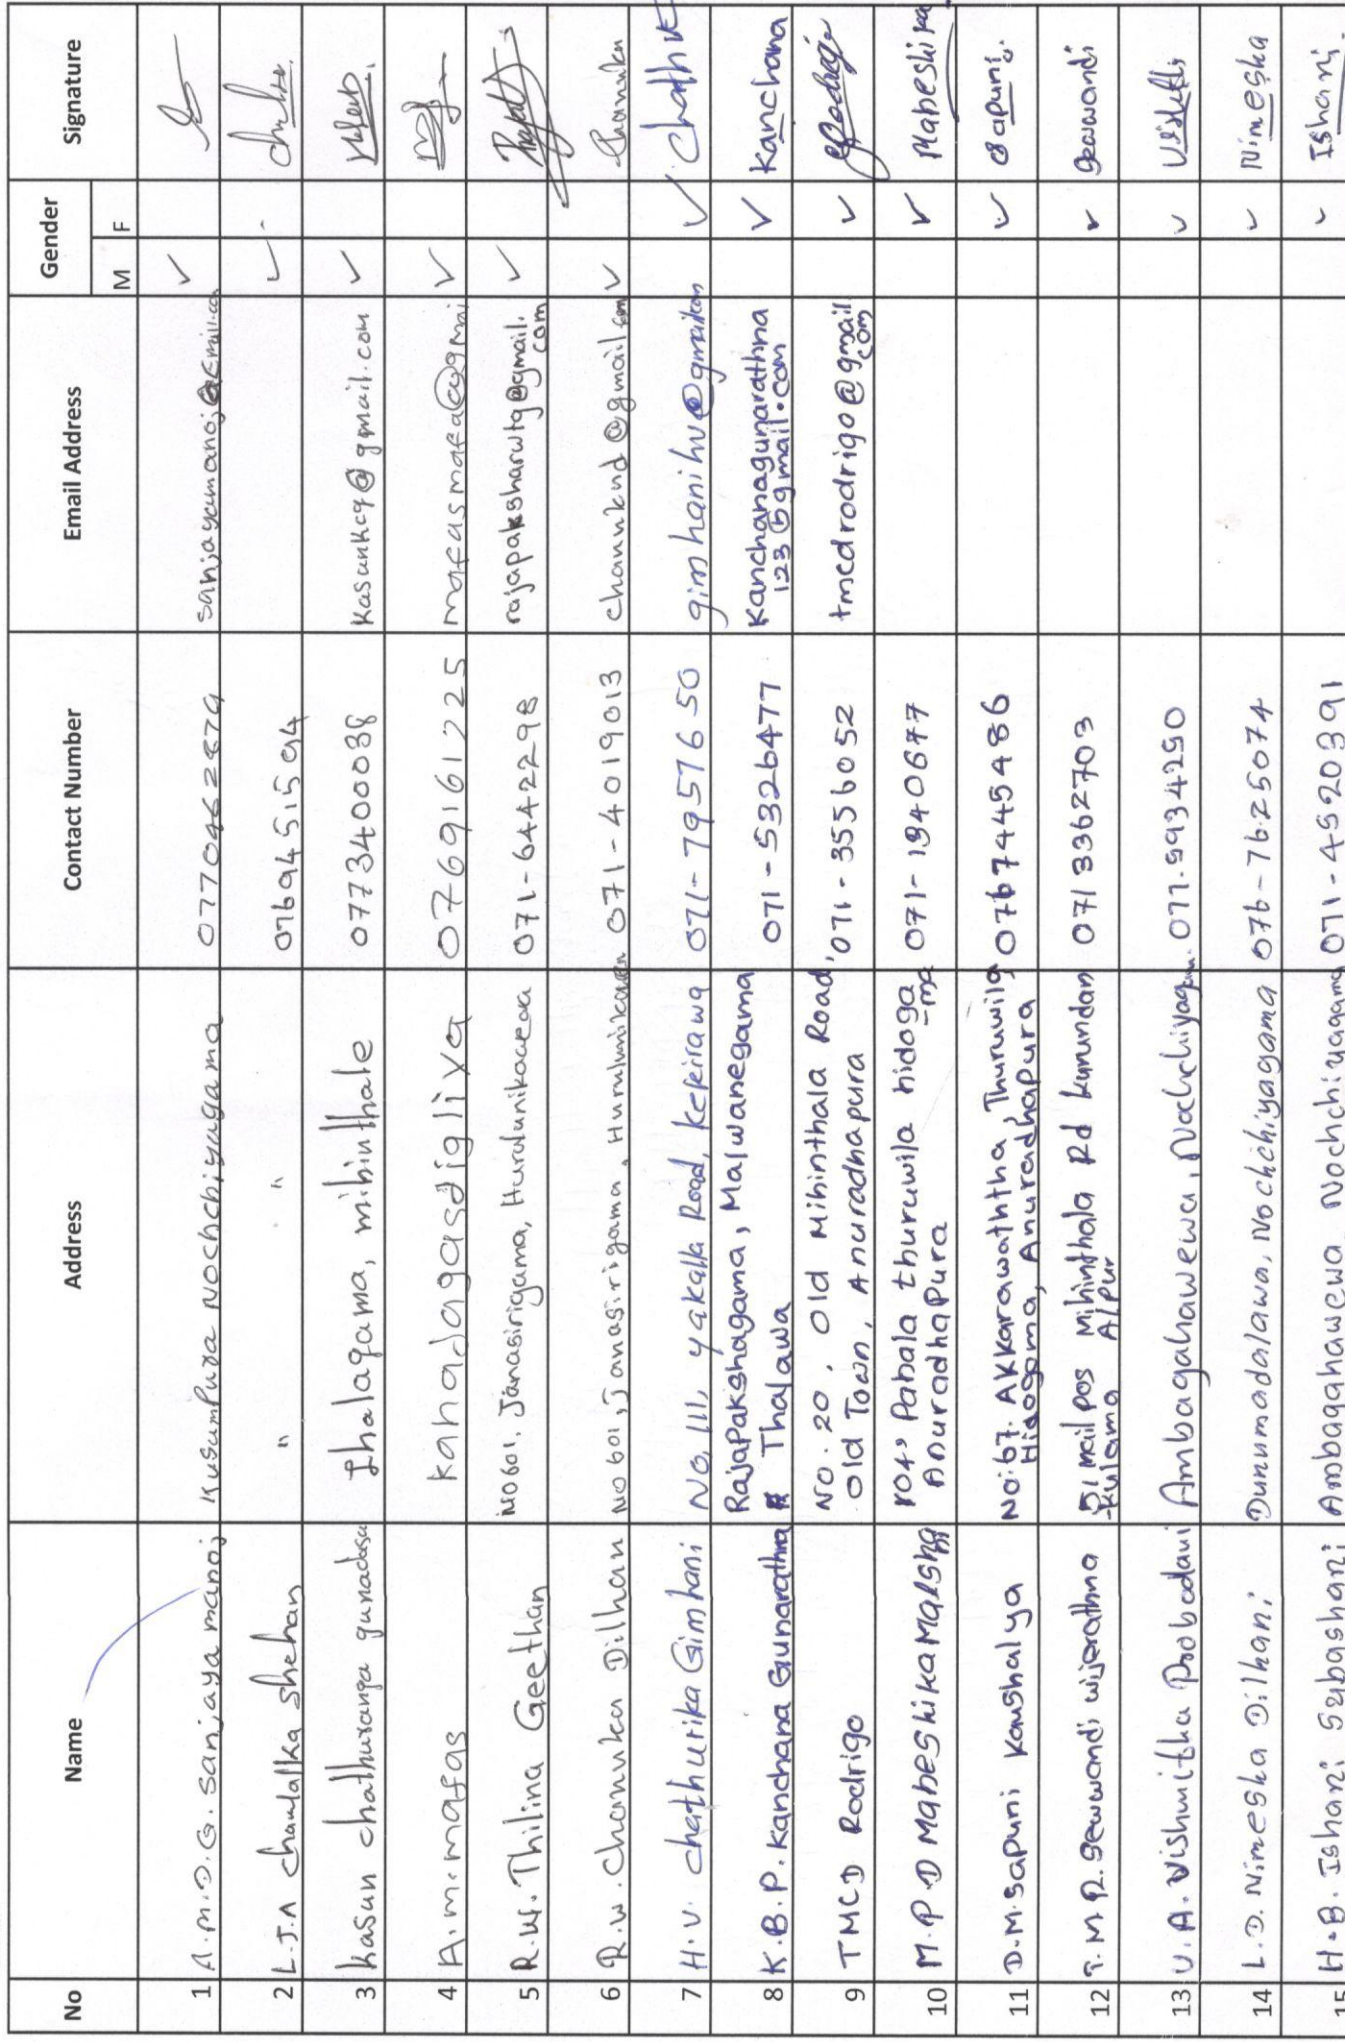 No Name Address Contact Number Email Address Gender Signature
M F
1 A.M.D.G. Sanjaya manoj Kusumpura Nochchiyagama 0770462879 sanjayamanoj@gmail.com ✓
2 L.J.A chawlalka shehan " " 0769451594 ✓
3 kasun chathuranga gunadasa Ihalagama, mihinthale 0773400038 kasunkcg@gmail.com ✓
4 A.m.mafas kahadagasdigliya 0769161225 mafasmafa@gmai ✓
5 R.W. Thilina Geethan NO 601, Janasirigama, Hurulunikawewa 071-6442298 rajapaksharwtg@gmail.
com ✓
6 R.W. Chanuka Dilhan NO 601, Janasirigama, Hurulunikawewa 071-4019013 chanuknd@gmail.com ✓ Chanuka
7 H.V. chathurika Gimhani No, 111, yakalla Road, kekirawa 071-7957650 gimhanihv@gmail.com ✓ Chathu
8 K.B.P. Kanchana Gunarathna Rajapakshagama, Malwanegama
Thalawa 071-5326477 Kanchanagunarathna
123@gmail.com ✓ Kanchana
9 TMCD Rodrigo NO. 20, Old Mihinthala Road,
Old Town, Anuradhapura 071-3556052 tmcdrodrigo@gmail
com ✓
10 M.P.D Maheshika Malsha
ni 104, Pabala thuruwila hidoga
ma
Anuradhapura 071-1940677 ✓ Maheshika
11 D.M. Sapuni Kaushalya No:67. Akkarawaththa, Thuruwila
Hidogama, Anuradhapura 0767445486 ✓ Sapuni
12 T.M.R. Sewwandi wijerathna 51 mail pos Mihinthala Rd kurundan
-kulama A/Pur 0713362703 ✓ Sewwandi
13 U.A. Vishmitha Prabodani Ambagahawewa, Nochchiyagama. 077.5934250 ✓
14 L.D. Nimesha Dilhani Dunumadalawa, Nochchiyagama 076-7625074 ✓ Nimesha
15 H.B. Ishani Subashani Ambagahawewa Nochchiyagama 071-4520391 ✓ Ishani.